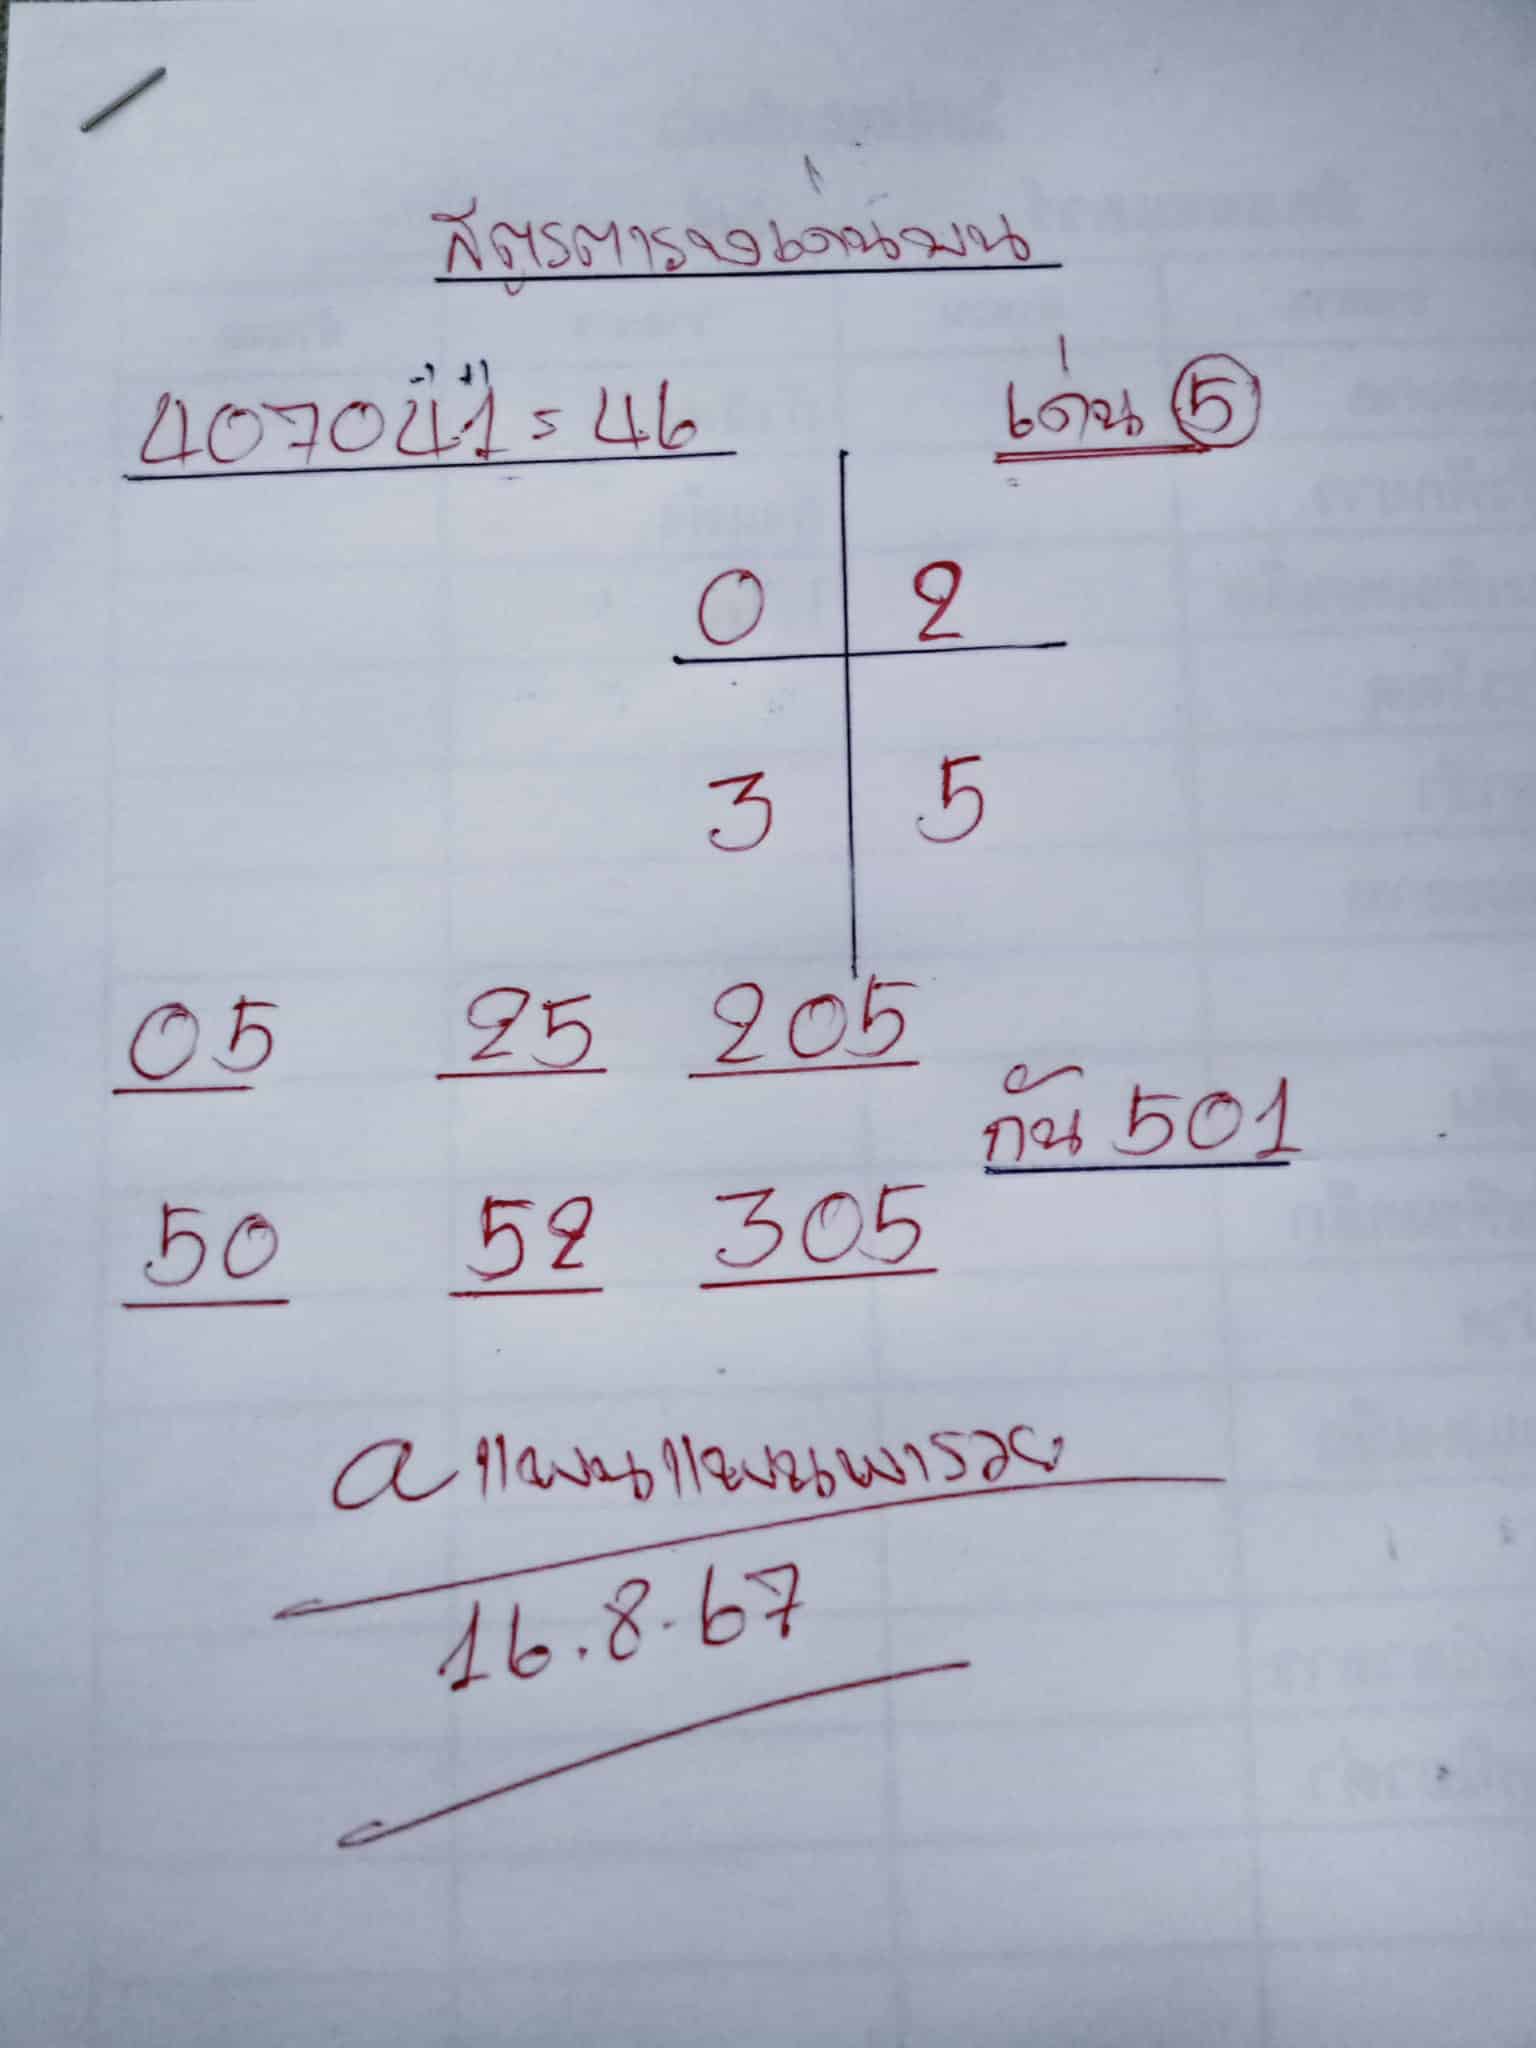 สูตรตารางเด่นบน
407041 = 46
เด่น 5
0 2
3 5
05 25 205
กัน 501
50 52 305
a แบงนแบงนพารวย
16.8.67